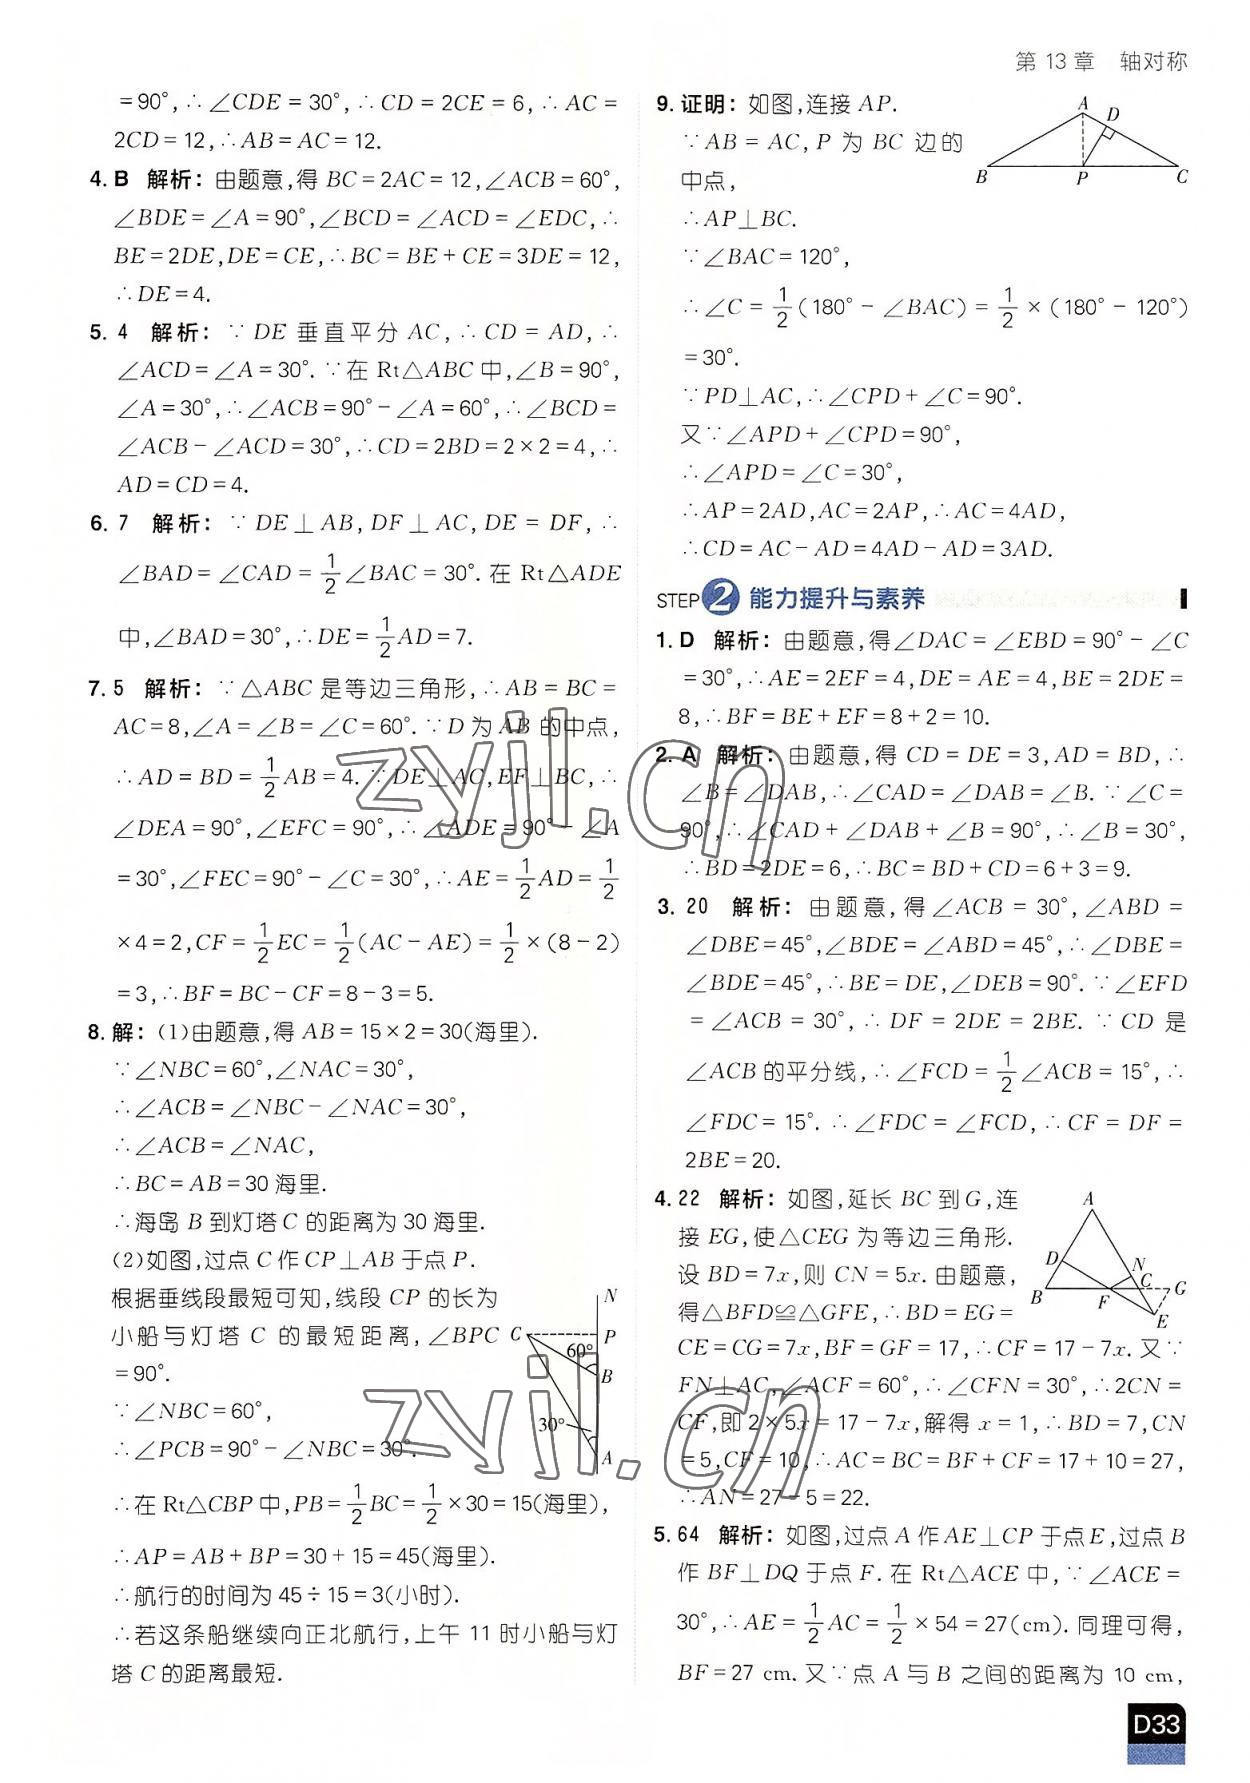 第 13 章　轴对称
=90°,∴∠CDE=30°,∴CD=2CE=6,∴AC=
2CD=12,∴AB=AC=12.
4. B　解析：由题意,得 BC=2AC=12,∠ACB=60°,
∠BDE=∠A=90°,∠BCD=∠ACD=∠EDC,∴
BE=2DE,DE=CE,∴BC=BE+CE=3DE=12,
∴DE=4.
5. 4　解析：∵DE 垂直平分 AC,∴CD=AD,∴
∠ACD=∠A=30°.∵在 Rt△ABC 中,∠B=90°,
∠A=30°,∴∠ACB=90°-∠A=60°,∴∠BCD=
∠ACB-∠ACD=30°,∴CD=2BD=2×2=4,∴
AD=CD=4.
6. 7　解析：∵DE⊥AB,DF⊥AC,DE=DF,∴
∠BAD=∠CAD=1/2∠BAC=30°.在 Rt△ADE
中,∠BAD=30°,∴DE=1/2AD=7.
7. 5　解析：∵△ABC 是等边三角形,∴AB=BC=
AC=8,∠A=∠B=∠C=60°.∵D 为 AB 的中点,
∴AD=BD=1/2AB=4.∵DE⊥AC,EF⊥BC,∴
∠DEA=90°,∠EFC=90°,∴∠ADE=90°-∠A
=30°,∠FEC=90°-∠C=30°,∴AE=1/2AD=1/2
×4=2,CF=1/2EC=1/2(AC-AE)=1/2×(8-2)
=3,∴BF=BC-CF=8-3=5.
8. 解：(1)由题意,得 AB=15×2=30(海里).
∵∠NBC=60°,∠NAC=30°,
∴∠ACB=∠NBC-∠NAC=30°,
∴∠ACB=∠NAC,
∴BC=AB=30 海里.
∴海岛 B 到灯塔 C 的距离为 30 海里.
(2)如图,过点 C 作 CP⊥AB 于点 P.
根据垂线段最短可知,线段 CP 的长为
小船与灯塔 C 的最短距离,∠BPC
=90°.
∵∠NBC=60°,
∴∠PCB=90°-∠NBC=30°.
∴在 Rt△CBP 中,PB=1/2BC=1/2×30=15(海里),
∴AP=AB+BP=30+15=45(海里).
∴航行的时间为 45÷15=3(小时).
∴若这条船继续向正北航行,上午 11 时小船与灯
塔 C 的距离最短.
N
C
P
60°
B
30°
A
9. 证明：如图,连接 AP.
∵AB=AC,P 为 BC 边的
中点,
∴AP⊥BC.
∵∠BAC=120°,
∴∠C=1/2(180°-∠BAC)=1/2×(180°-120°)
=30°.
∵PD⊥AC,∴∠CPD+∠C=90°.
又∵∠APD+∠CPD=90°,
∴∠APD=∠C=30°,
∴AP=2AD,AC=2AP,∴AC=4AD,
∴CD=AC-AD=4AD-AD=3AD.
A
D
B
P
C
STEP 2 能力提升与素养
1. D　解析：由题意,得∠DAC=∠EBD=90°-∠C
=30°,∴AE=2EF=4,DE=AE=4,BE=2DE=
8,∴BF=BE+EF=8+2=10.
2. A　解析：由题意,得 CD=DE=3,AD=BD,∴
∠B=∠DAB,∴∠CAD=∠DAB=∠B.∵∠C=
90°,∴∠CAD+∠DAB+∠B=90°,∴∠B=30°,
∴BD=2DE=6,∴BC=BD+CD=6+3=9.
3. 20　解析：由题意,得∠ACB=30°,∠ABD=
∠DBE=45°,∠BDE=∠ABD=45°,∴∠DBE=
∠BDE=45°,∴BE=DE,∠DEB=90°.∵∠EFD
=∠ACB=30°,∴DF=2DE=2BE.∵CD 是
∠ACB 的平分线,∴∠FCD=1/2∠ACB=15°,∴
∠FDC=15°.∴∠FDC=∠FCD,∴CF=DF=
2BE=20.
4. 22　解析：如图,延长 BC 到 G,连
接 EG,使△CEG 为等边三角形.
设 BD=7x,则 CN=5x.由题意,
得△BFD≌△GFE,∴BD=EG=
CE=CG=7x,BF=GF=17,∴CF=17-7x.又∵
FN⊥AC,∠ACF=60°,∴∠CFN=30°,∴2CN=
CF,即 2×5x=17-7x,解得 x=1,∴BD=7,CN
=5,CF=10,∴AC=BC=BF+CF=17+10=27,
∴AN=27-5=22.
A
D
N
C
G
B
F
E
5. 64　解析：如图,过点 A 作 AE⊥CP 于点 E,过点 B
作 BF⊥DQ 于点 F.在 Rt△ACE 中,∵∠ACE=
30°,∴AE=1/2AC=1/2×54=27(cm).同理可得,
BF=27 cm.又∵点 A 与 B 之间的距离为 10 cm,
D33
zyjl.cn
zyjl.cn